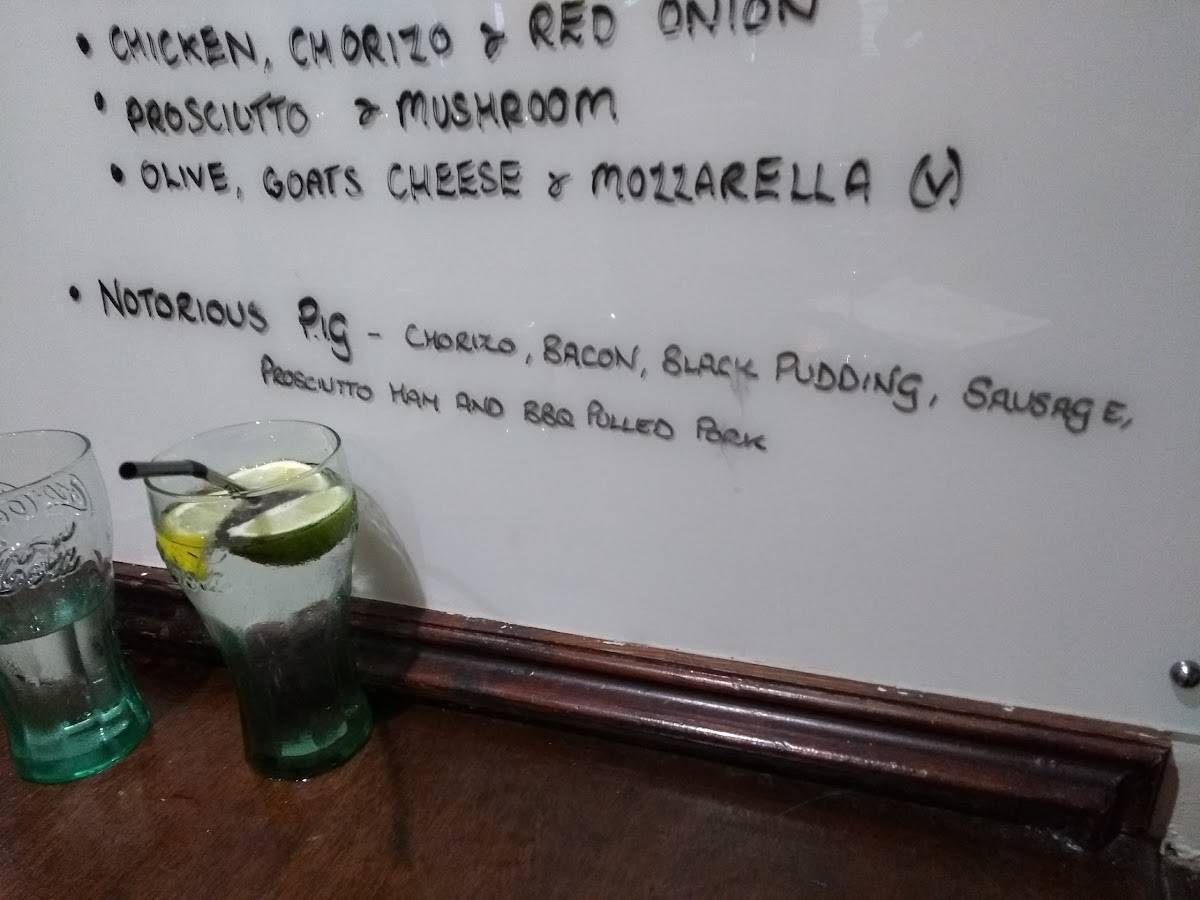 • CHICKEN, CHORIZO & RED ONION
• PROSCIUTTO & MUSHROOM
• OLIVE, GOATS CHEESE & MOZZARELLA (V)
• NOTORIOUS P.I.G - CHORIZO, BACON, BLACK PUDDING, SAUSAGE,
PROSCIUTTO HAM AND BBQ PULLED PORK